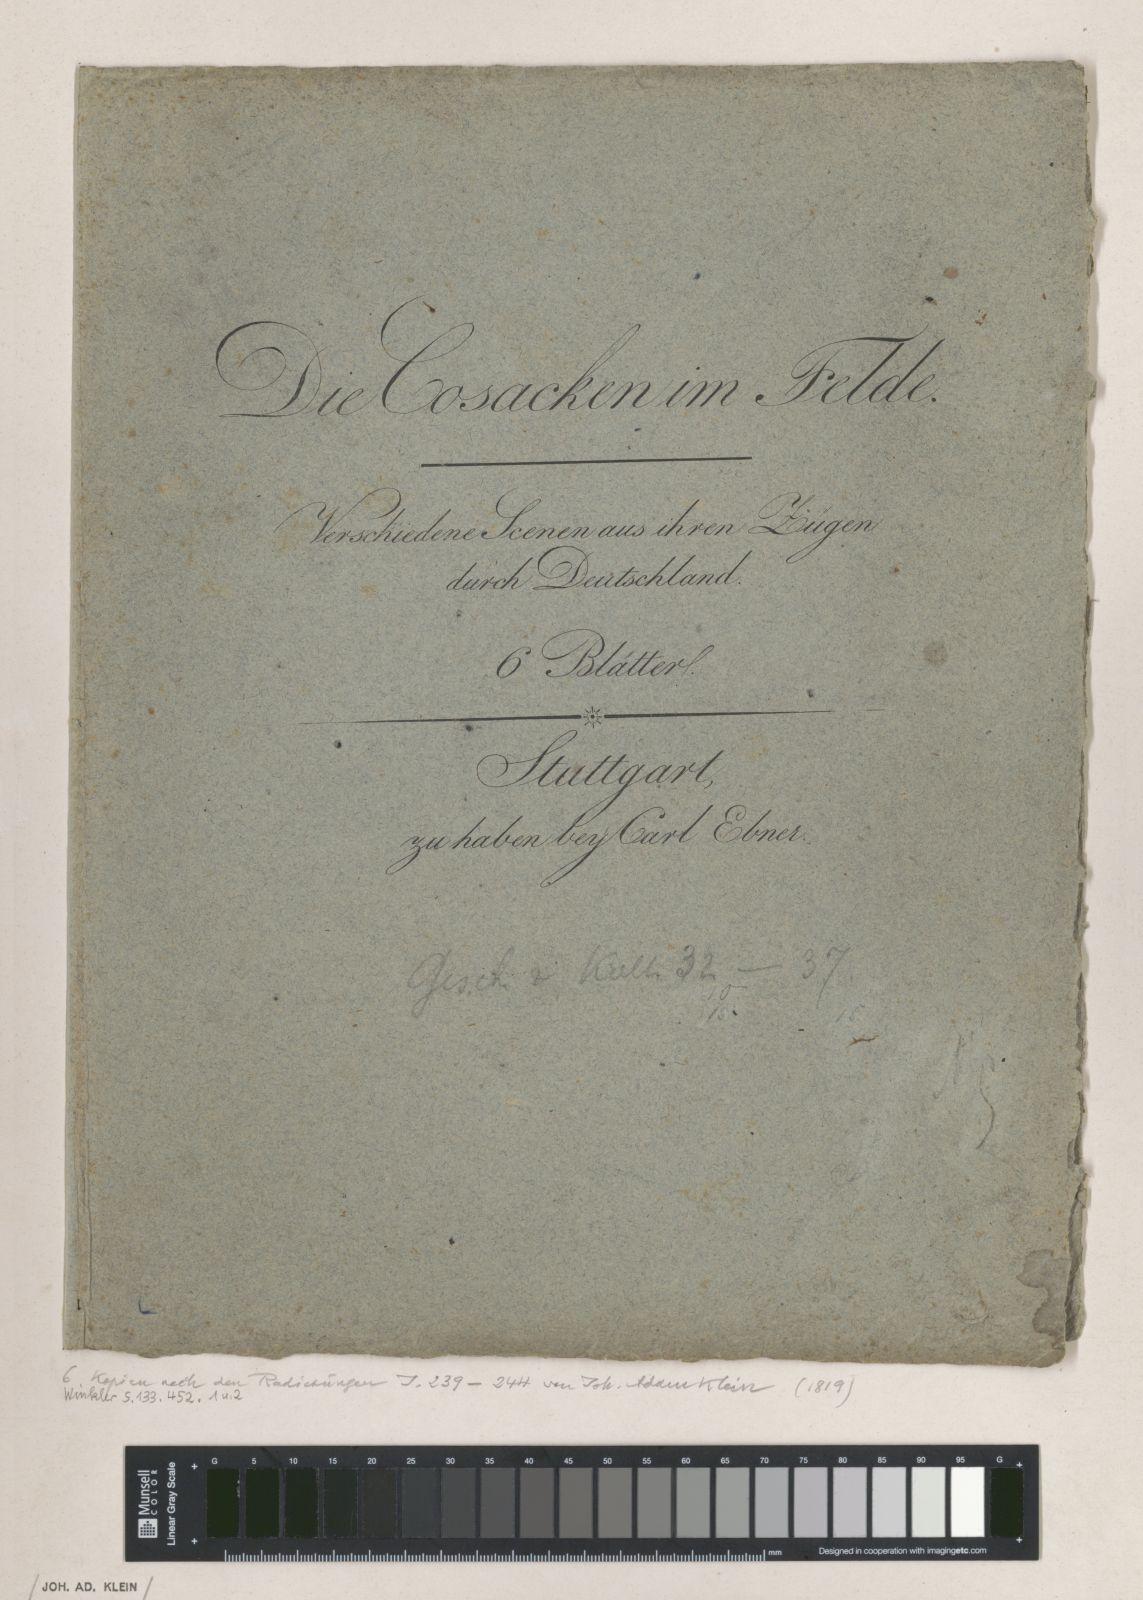 Die Cosacken im Felde.
Verschiedene Scenen aus ihren Zügen
durch Deutschland.
6 Blätter.
Stuttgart,
zu haben bey Carl Ebner.
Gesch. 32 — 37
15. 15
6 Kopien nach den Radierungen J. 239 – 244 von Joh. Adam Klein (1819)
Winkler S. 133. 452. 1 u. 2
Munsell
COLOR
Linear Gray Scale
G 5 10 15 20 25 30 35 40 45 50 55 60 65 70 75 80 85 90 95 G
mm
Designed in cooperation with imagingetc.com
JOH. AD. KLEIN